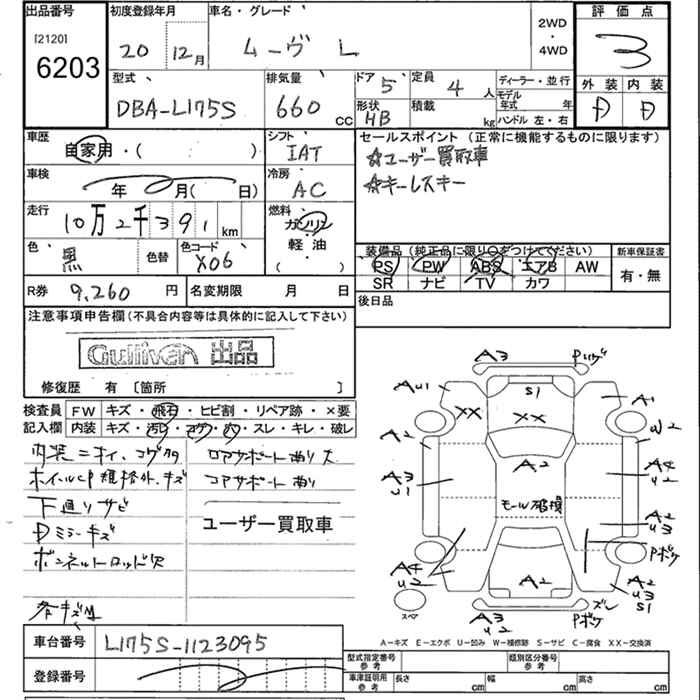 出品番号 初度登録年月 車名・グレード 2WD・4WD 評価点
[2120]
6203 20 12月 ムーヴ L 3
型式 排気量 ドア 5 定員 4 人 ディーラー・並行 外装 内装
DBA-L175S 660 CC 形状 HB 積載 kg モデル年式 年 ハンドル 左・右 D D
車歴 シフト セールスポイント (正常に機能するものに限ります)
自家用・( ) IAT ☆ユーザー買取車
車検 年 月( 日) 冷房 AC ☆キーレスキー
走行 10万2千391 km 燃料 ガソリン
軽油
( )
色 黒 色替 色コード X06
装備品 (純正品に限り○をつけてください) 新車保証書
PS PW ABS エアB AW 有・無
SR ナビ TV カワ
R券 9,260 円 名変期限 月 日 後日品
注意事項申告欄(不具合内容等は具体的に記入して下さい)
Gulliver 出品
修復歴 有 〔箇所 〕
検査員 FW キズ・飛石・ヒビ割・リペア跡・×要
記入欄 内装 キズ・汚れ・コゲ・穴・スレ・キレ・破レ
内装ニオイ、コゲ多 ロアサポートあり大
ホイールCP規格外、キズ コアサポートあり
下廻りサビ
Dミラーキズ ユーザー買取車
ボンネットロッド欠
各キズ凹
車台番号 L175S-1123095
登録番号
A3 Pツゲ
AU1 S1 A1
XX XX
A2 A2 W2
A3 U1 A4 U2
モール破損 A2 U3
Pボケ
A4 U2 A2 A2 U3 S1
スペア A3 U2 ズレ Pボケ
A-キズ E-エクボ U-凹み W-補修跡 S-サビ C-腐食 XX-交換済
型式指定番号 参考 類別区分番号 参考
車体証明用 参考 長さ cm 幅 cm 高さ cm